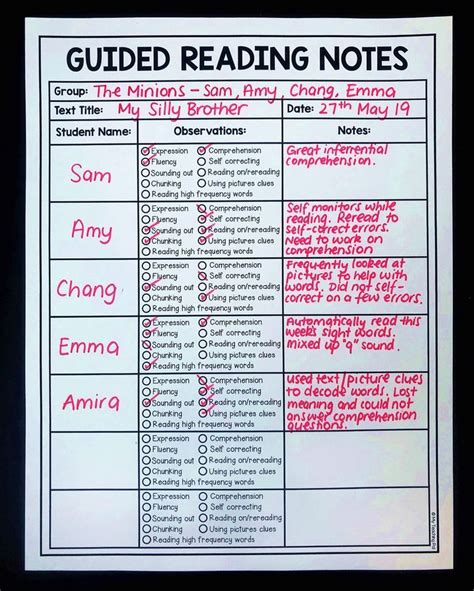 GUIDED READING NOTES
Group: The Minions - Sam, Amy, Chang, Emma
Text Title: My Silly Brother Date: 27th May 19
Student Name: Observations: Notes:
Sam
Expression Comprehension
Fluency Self correcting
Sounding out Reading on/rereading
Chunking Using pictures clues
Reading high frequency words
Great inferential
comprehension.
Amy
Expression Comprehension
Fluency Self correcting
Sounding out Reading on/rereading
Chunking Using pictures clues
Reading high frequency words
Self monitors while
reading. Reread to
self-correct errors.
Need to work on
comprehension
Chang
Expression Comprehension
Fluency Self correcting
Sounding out Reading on/rereading
Chunking Using pictures clues
Reading high frequency words
Frequently looked at
pictures to help with
words. Did not self-
correct on a few errors.
Emma
Expression Comprehension
Fluency Self correcting
Sounding out Reading on/rereading
Chunking Using pictures clues
Reading high frequency words
Automatically read this
weeks sight words.
mixed up "q" sound.
Amira
Expression Comprehension
Fluency Self correcting
Sounding out Reading on/rereading
Chunking Using pictures clues
Reading high frequency words
used text/picture clues
to decode words. Lost
meaning and could not
answer comprehension
questions.
Expression Comprehension
Fluency Self correcting
Sounding out Reading on/rereading
Chunking Using pictures clues
Reading high frequency words
Expression Comprehension
Fluency Self correcting
Sounding out Reading on/rereading
Chunking Using pictures clues
Reading high frequency words